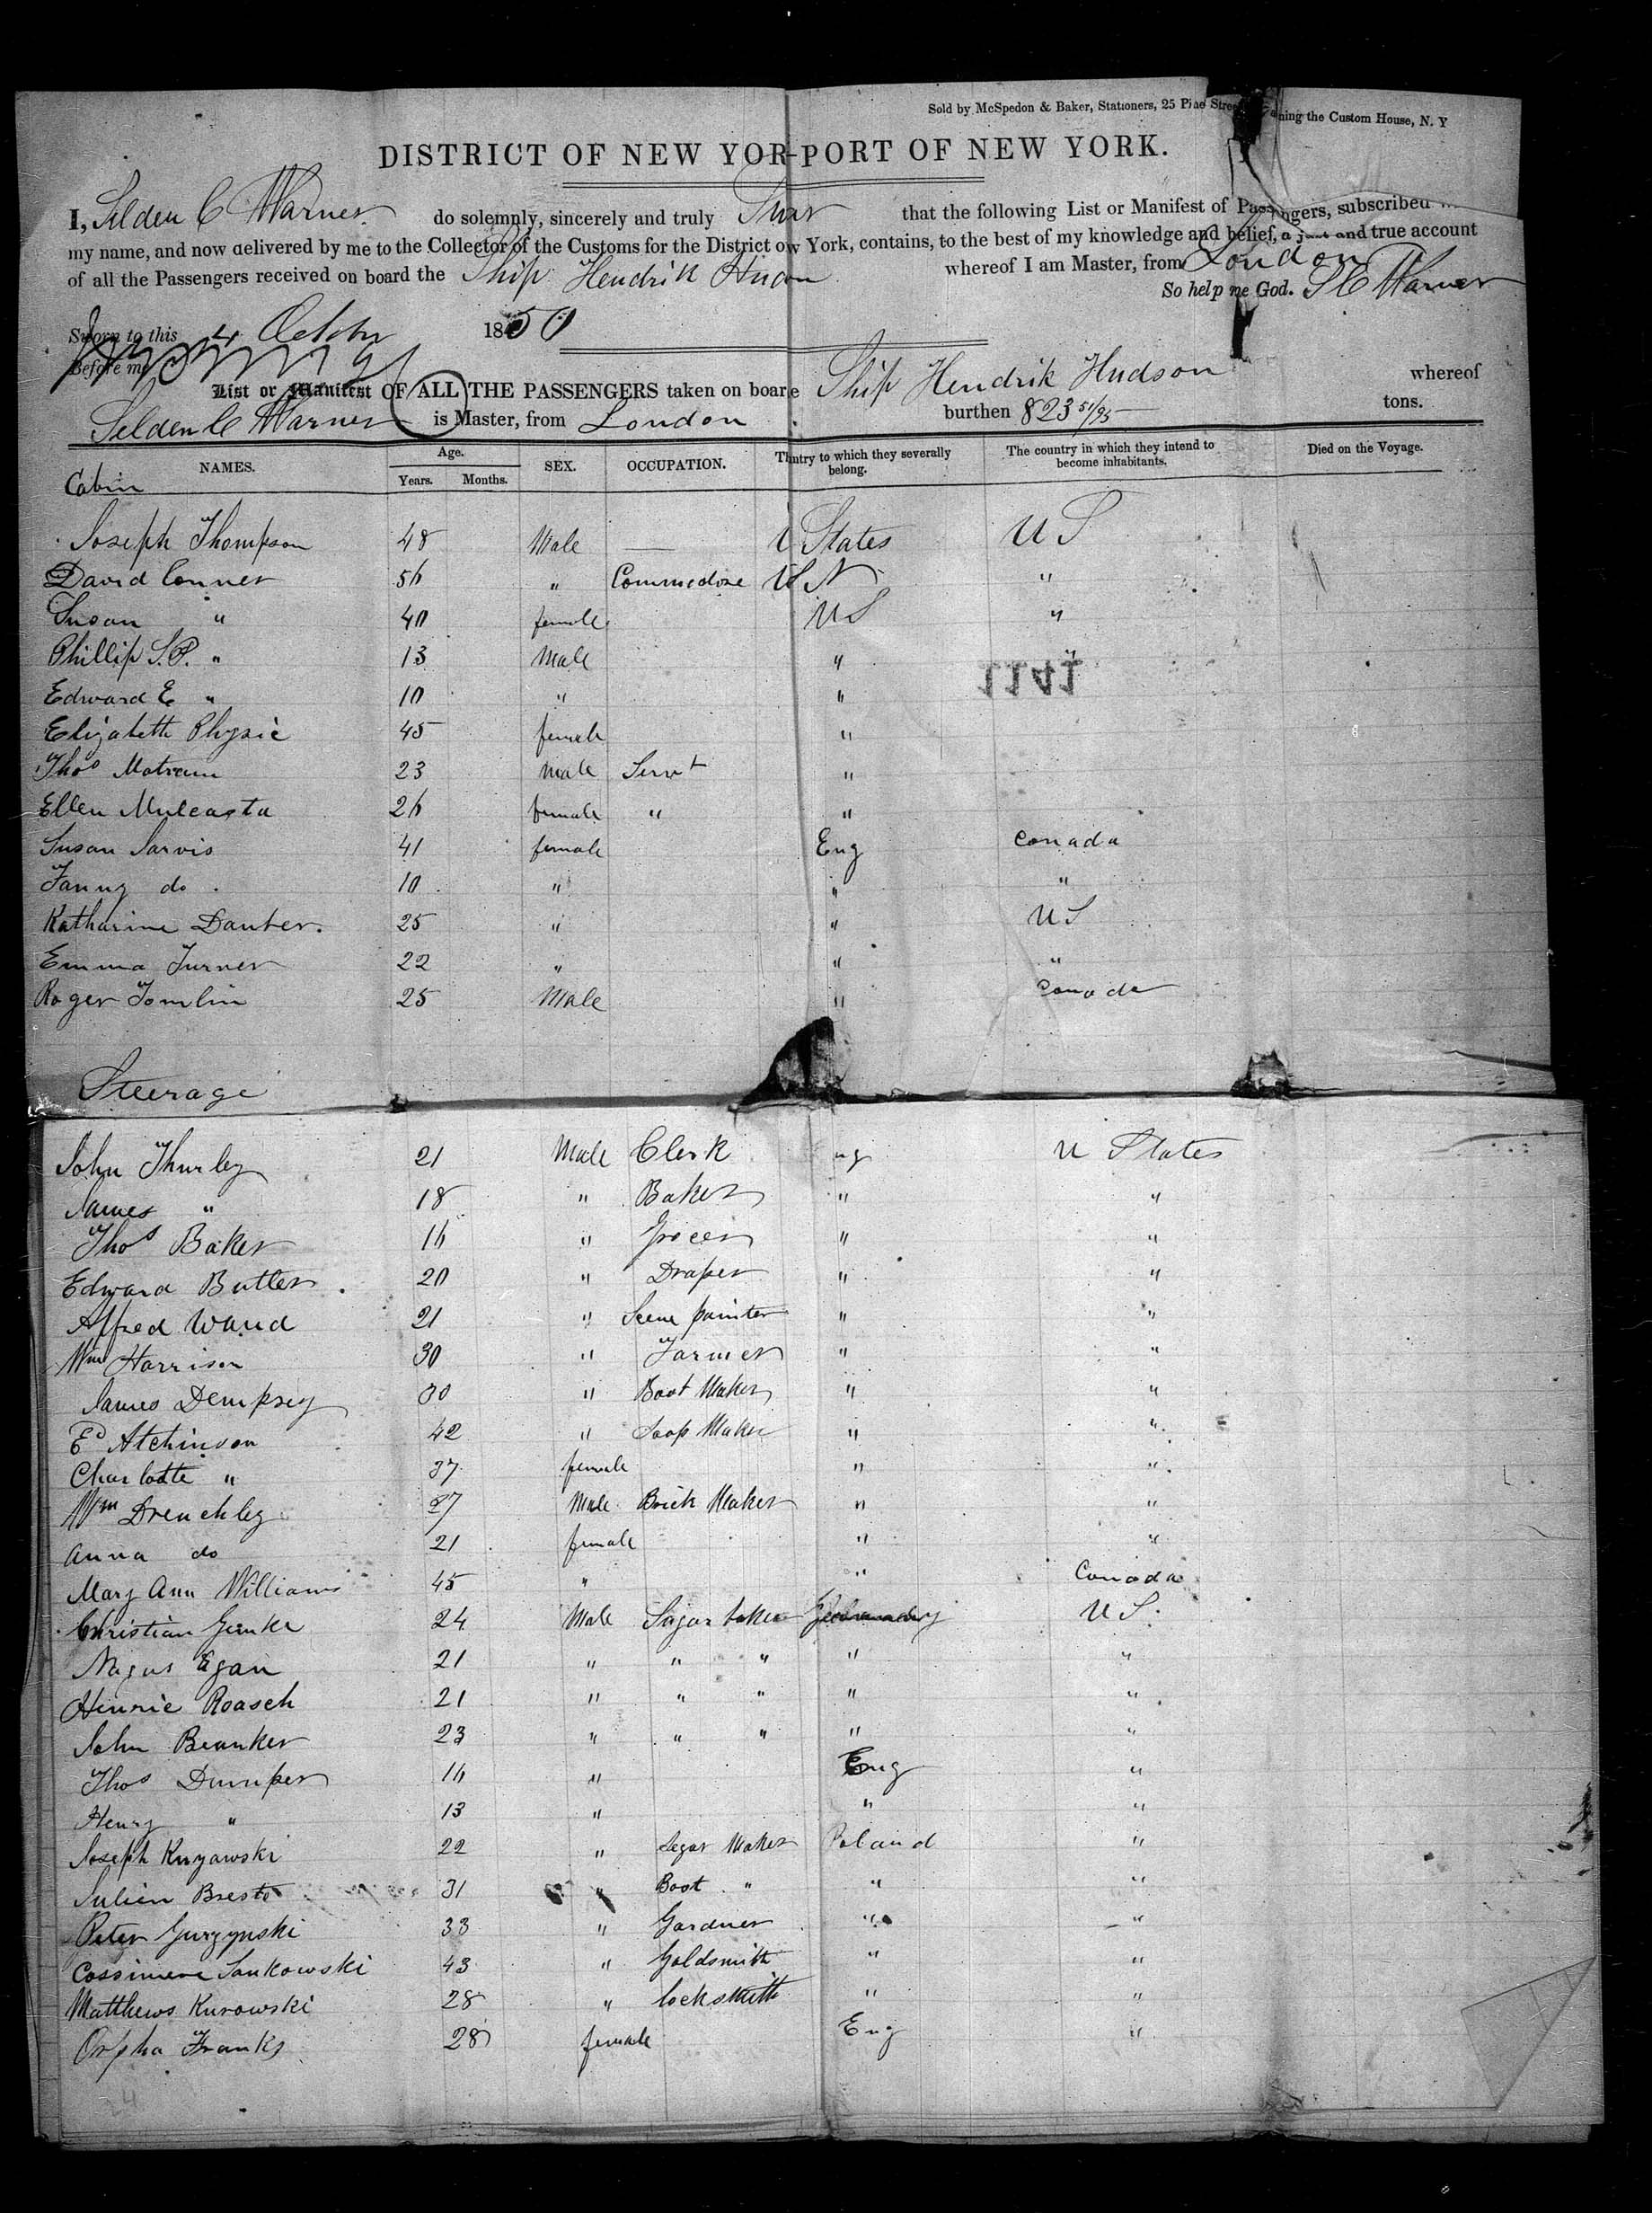 Sold by McSpedon & Baker, Stationers, 25 Pine Stree ning the Custom House, N. Y
DISTRICT OF NEW YOR-PORT OF NEW YORK.
I, Selden C Warner do solemnly, sincerely and truly Swar that the following List or Manifest of Passengers, subscribed
my name, and now delivered by me to the Collector of the Customs for the District ow York, contains, to the best of my knowledge and belief, a just and true account
of all the Passengers received on board the Ship Hendrik whereof I am Master, from London
So help me God. S C Warner
Sworn to this 4 October 1850
Before me
List or Manifest OF ALL THE PASSENGERS taken on board Ship Hendrik Hudson whereof
Selden C Warner is Master, from London burthen 823 51/95 tons.
NAMES. Age. Years. Months. SEX. OCCUPATION. Thntry to which they severally belong. The country in which they intend to become inhabitants. Died on the Voyage.
Cabin
Joseph Thompson 48 Male — U States U S
David Conner 56 " Commodore U S N "
Susan " 40 female U S "
Phillip S. P. " 13 Male " "
1141
Edward E " 10 " "
Elizabeth Physic 45 female "
Thos Motram 23 Male Servt "
Ellen Mulcasta 26 female " "
Susan Jarvis 41 female Eng Canada
Fanny do. 10 " " "
Katharine Dauber. 25 " " U S
Emma Turner 22 " " "
Roger Tomlin 25 Male " Canada
Steerage
John Thurley 21 Male Clerk ng U States
James " 18 " Baker " "
Thos Baker 16 " Grocer " "
Edward Butler 20 " Draper " "
Alfred Waud 21 " Scene painter " "
Wm Harrison 30 " Farmer " "
James Dempsey 30 " Boot Maker " "
Ed Atchinson 42 " Soap Maker " "
Charlotte " 37 female " "
Wm Drenchley 27 Male Brick Maker " "
Anna do 21 female " "
Mary Ann Williams 45 " " Canada
Christian Gemke 24 Male Sugar baker U S.
Magus Egan 21 " " " " "
Henrie Roasch 21 " " " " "
John Beanker 23 " " " " "
Thos Dumper 16 " Eng "
Henry " 13 " " "
Joseph Kuzawski 22 " Segar Maker Poland "
Julien Breste 31 " Boot " " "
Peter Gurzynski 33 " Gardner " "
Cassimere Sankowski 43 " Goldsmith " "
Matthews Kurowski 28 " locksmith " "
Orpha Franks 28 female Eng "
24